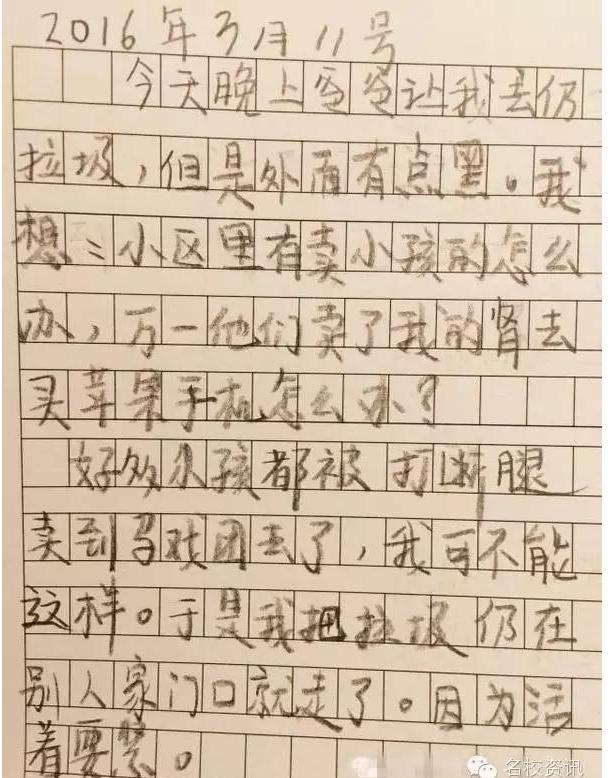 2016年3月11号
今天晚上爸爸让我去仍
垃圾，但是外面有点黑。我
想：小区里有卖小孩的怎么
办，万一他们卖了我的肾去
买苹果手机怎么办？
好多小孩都被打断腿
卖到马戏团去了，我可不能
这样。于是我把垃圾仍在
别人家门口就走了。因为活
着要紧。
名校资讯